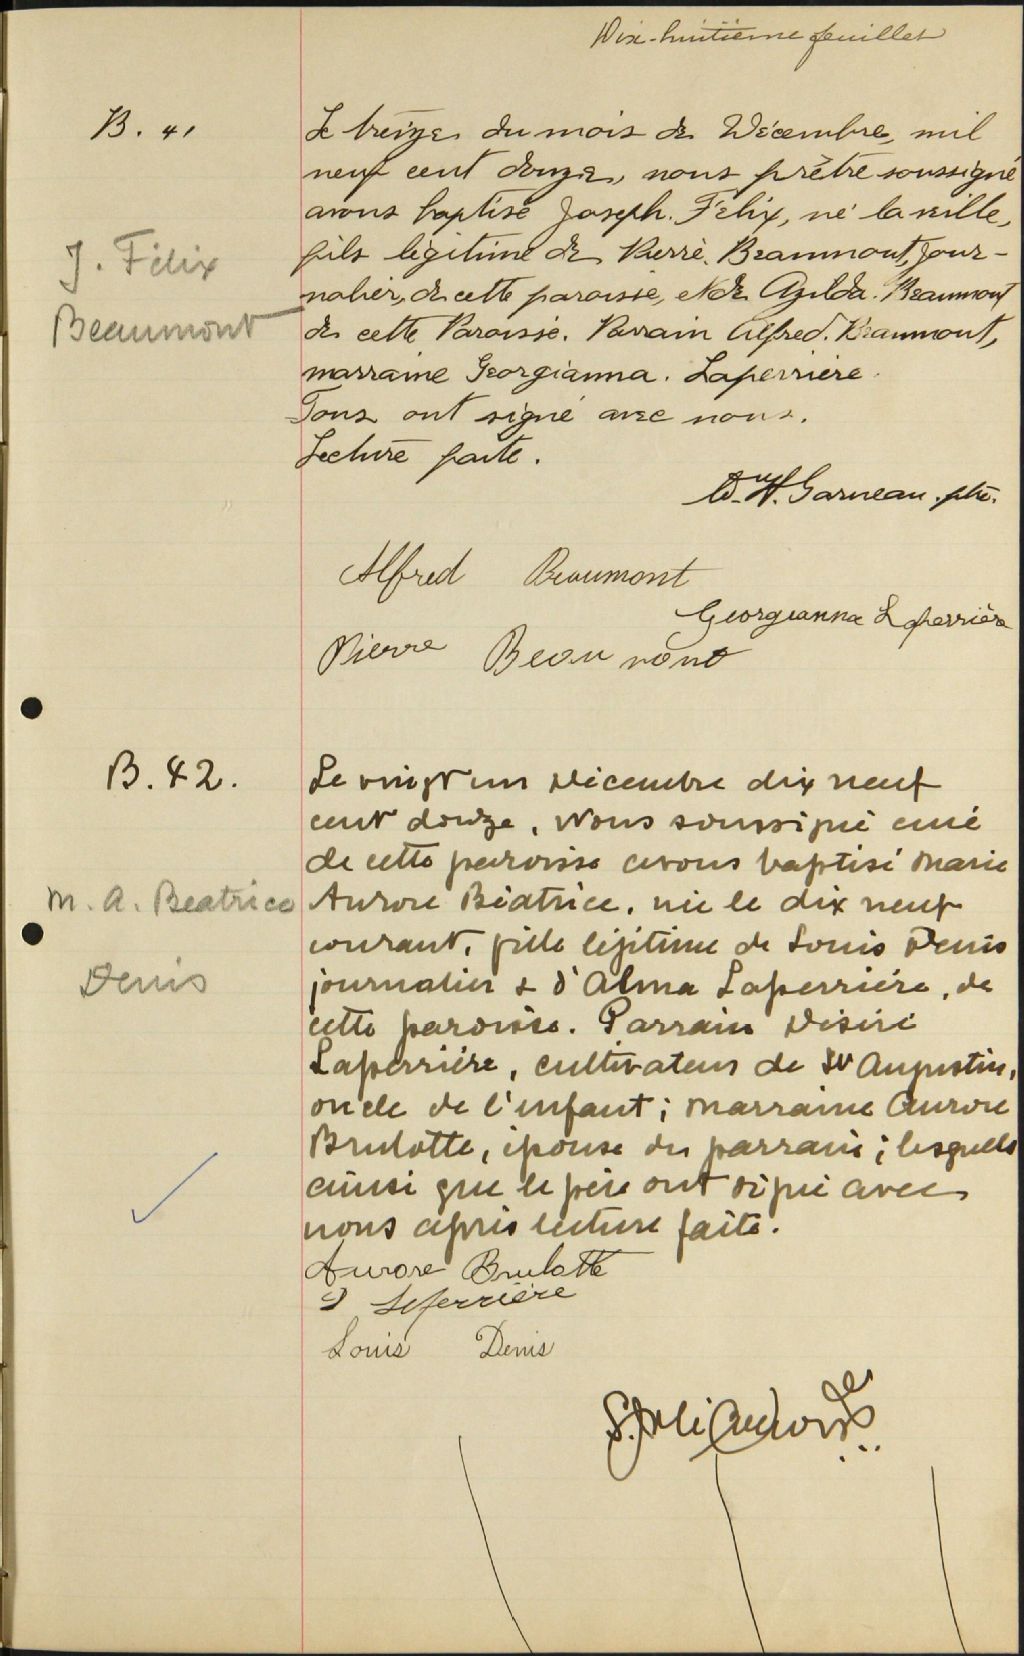 Dix-huitième feuillet
B. 41
Le treize du mois de Décembre, mil
neuf cent douze, nous prêtre soussigné
avons baptisé Joseph. Félix, né la veille,
fils légitime de Pierre. Beaumont, jour-
nalier, de cette paroisse, et de Azilda. Beaumont
de cette Paroisse. Parrain Alfred. Beaumont,
marraine Georgianna. Laperrière.
Tous ont signé avec nous.
Lecture faite.
J. Félix
Beaumont
H. Garneau. ptre.
Alfred Beaumont
Georgianna Laperrière
Pierre Beaumont
B. 42.
Le vingt un Décembre dix neuf
cent douze, Nous soussigné curé
de cette paroisse avons baptisé Marie
Aurore Béatrice, née le dix neuf
courant, fille légitime de Louis Denis
journalier & d'Alma Laperrière, de
cette paroisse. Parrain Désiré
Laperrière, cultivateur de St Augustin,
oncle de l'enfant; marraine Aurore
Brulotte, épouse du parrain; lesquels
ainsi que le père ont signé avec
nous après lecture faite.
M. A. Beatrice
Denis
Aurore Brulotte
D Laperrière
Louis Denis